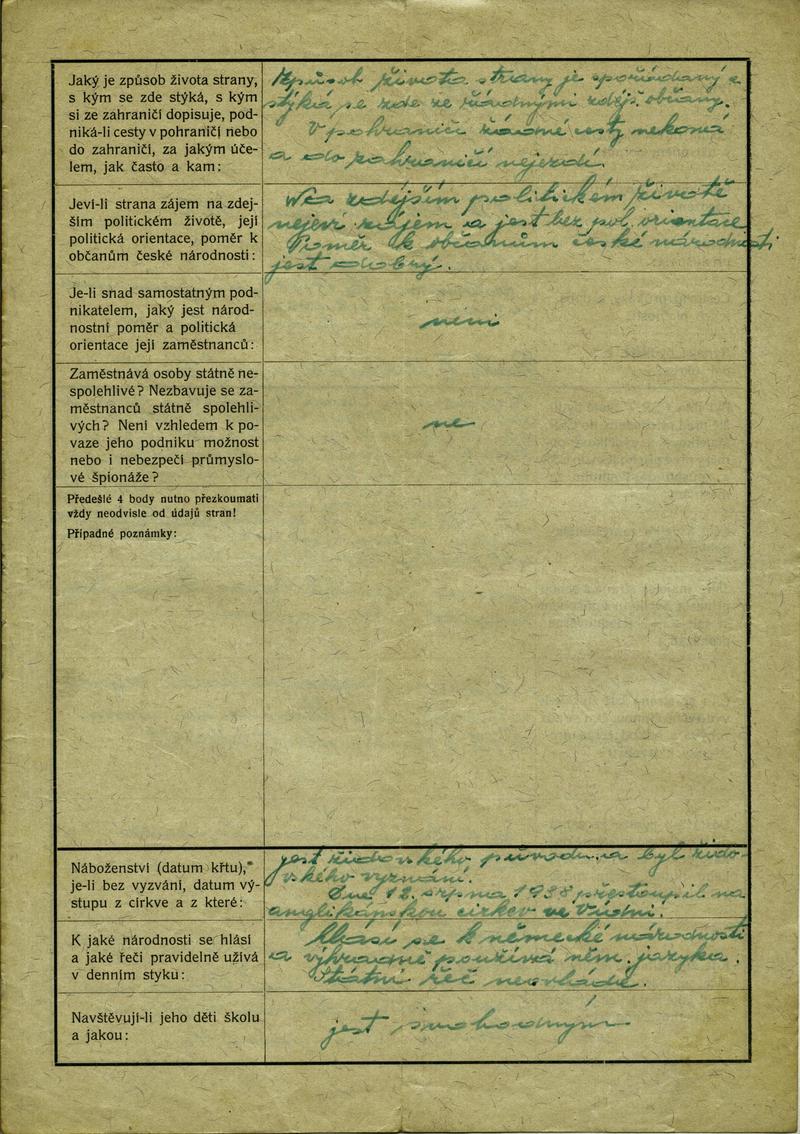 Jaký je způsob života strany,
s kým se zde stýká, s kým
si ze zahraničí dopisuje, pod-
niká-li cesty v pohraničí nebo
do zahraničí, za jakým úče-
lem, jak často a kam:
Způsob života strany je spořádaný a
stýká se zde se řádnými zdejš. občany.
V pohraničí žádné cesty nekoná
a do pohraničí nejezdí.
Jeví-li strana zájem na zdej-
ším politickém životě, její
politická orientace, poměr k
občanům české národnosti:
zdejším politickém životě
nejeví zájem a jest bez pol. orientace.
Poměr k občanům české národnosti
jest dobrý.
Je-li snad samostatným pod-
nikatelem, jaký jest národ-
nostní poměr a politická
orientace její zaměstnanců:
není
Zaměstnává osoby státně ne-
spolehlivé? Nezbavuje se za-
městnanců státně spolehli-
vých? Není vzhledem k po-
vaze jeho podniku možnost
nebo i nebezpečí průmyslo-
vé špionáže?
ne
Předešlé 4 body nutno přezkoumati
vždy neodvisle od údajů stran!
Případné poznámky:
Náboženství (datum křtu),*
je-li bez vyzvání, datum vý-
stupu z církve a z které:
jest židovského původu a byl židov-
ského vyznání.
Dne 12. srpna 1938 přestoupil na
anglikánskou církev ve Vídni.
K jaké národnosti se hlásí
a jaké řeči pravidelně užívá
v denním styku:
Hlásí se k německé národnosti
a výhradně používá něm. jazyka.
Státní řeč neovládá.
Navštěvují-li jeho děti školu
a jakou:
jest svobodným